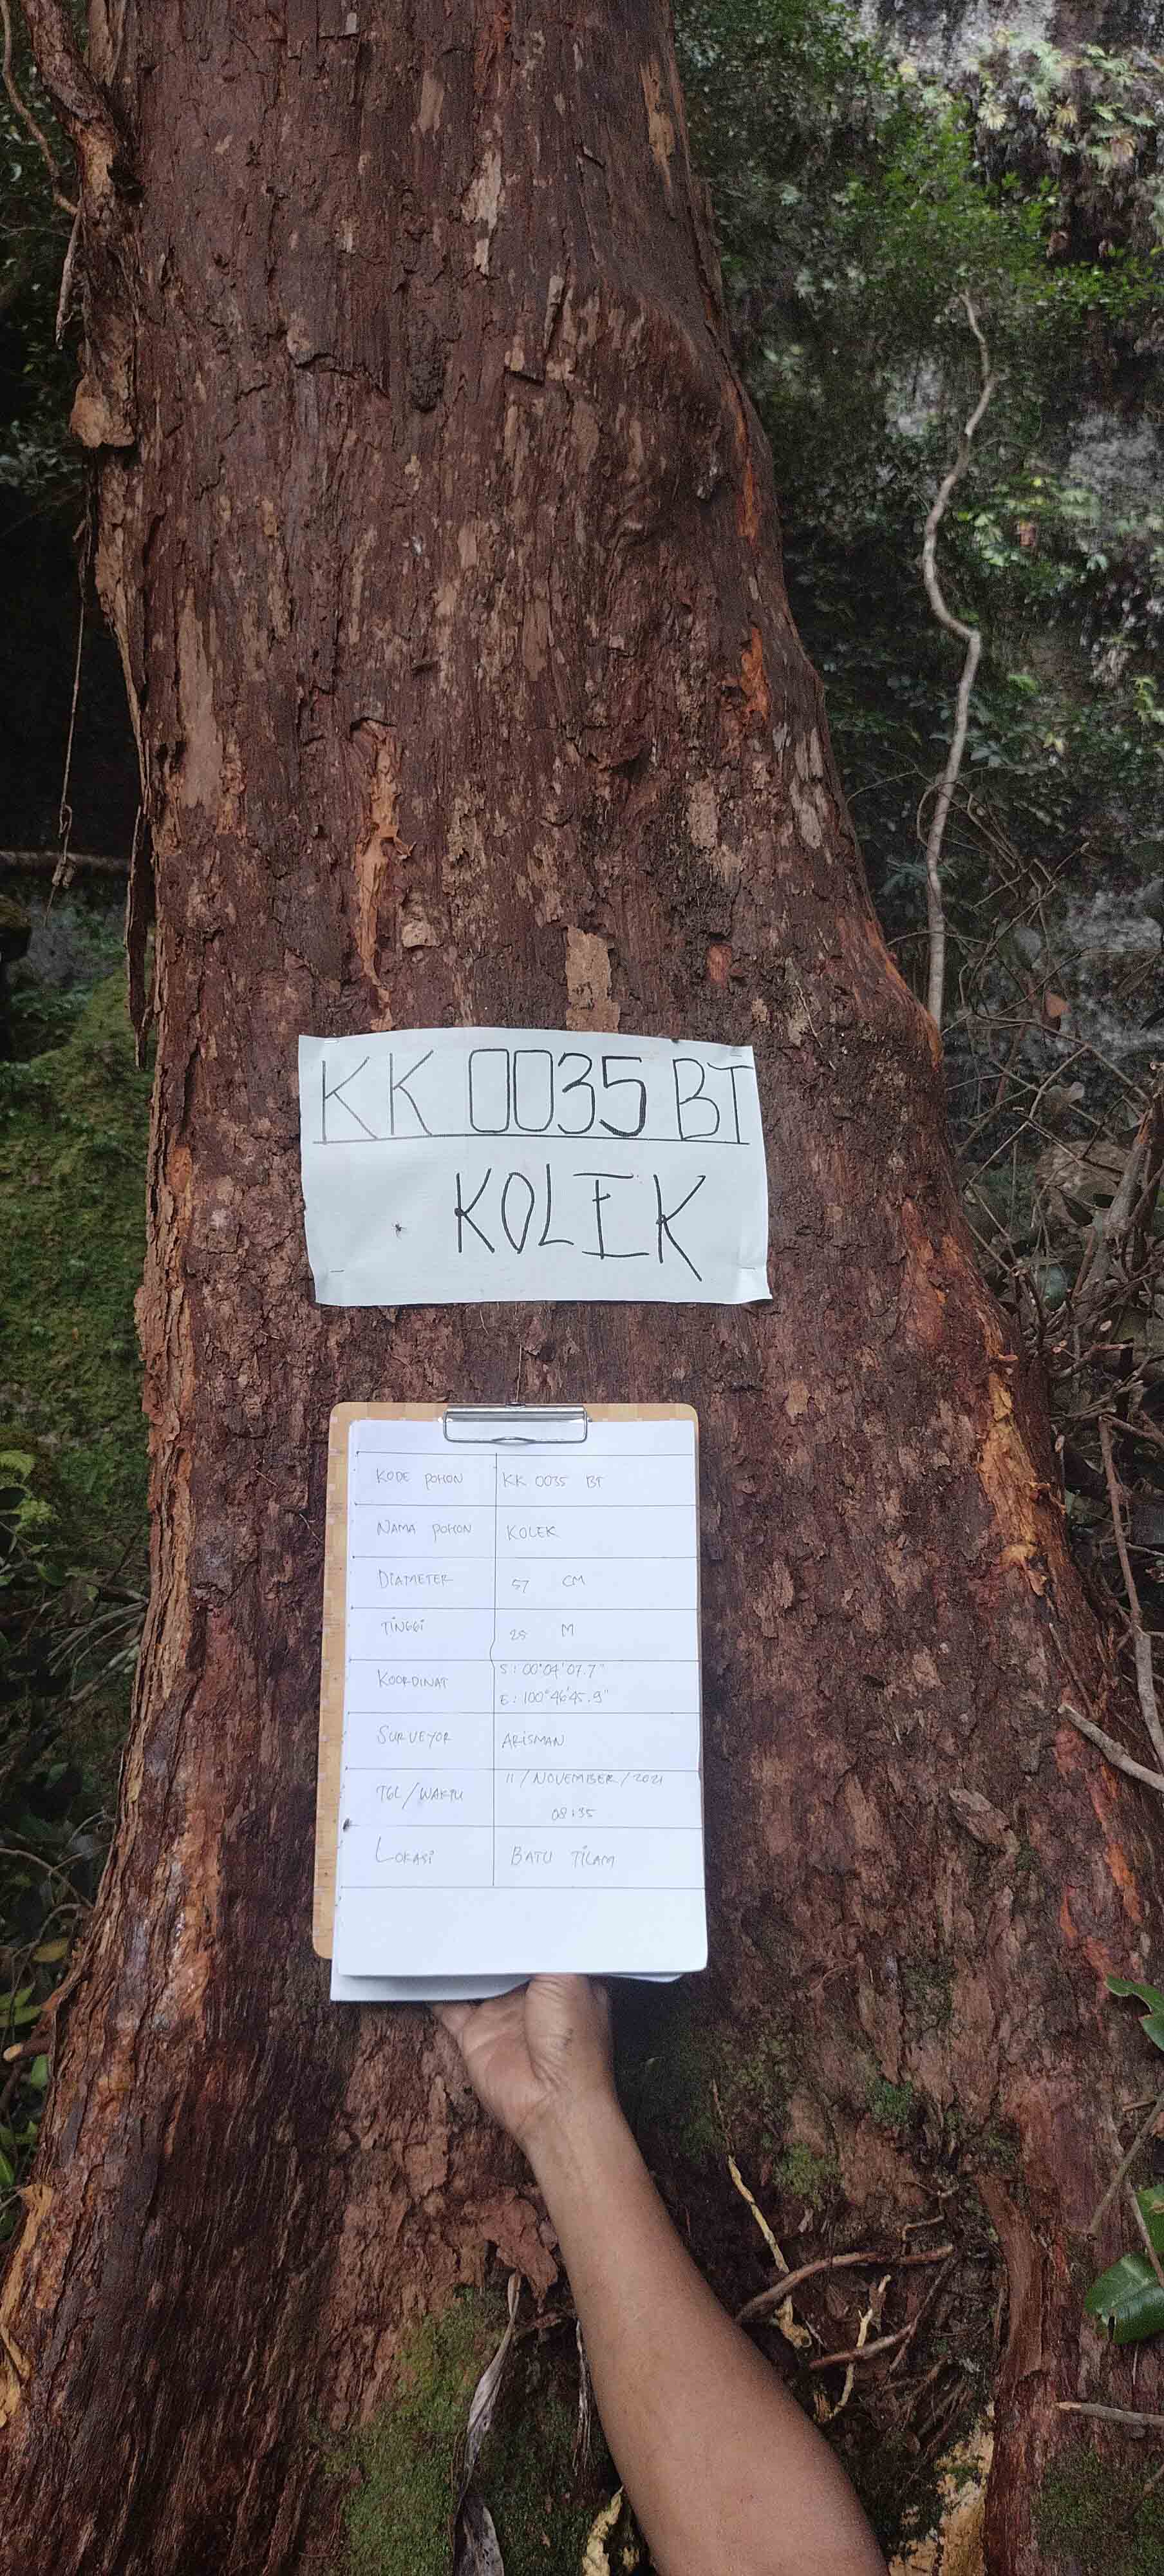 KK 0035 BT
KOLEK
KODE POHON KK 0035 BT
NAMA POHON KOLEK
DIAMETER 57 CM
TINGGI 25 M
KOORDINAT S : 00°04'07.7"
E : 100°46'45.9"
SURVEYOR ARISMAN
TGL/WAKTU 11/NOVEMBER/2021
08:35
LOKASI BATU TILAM